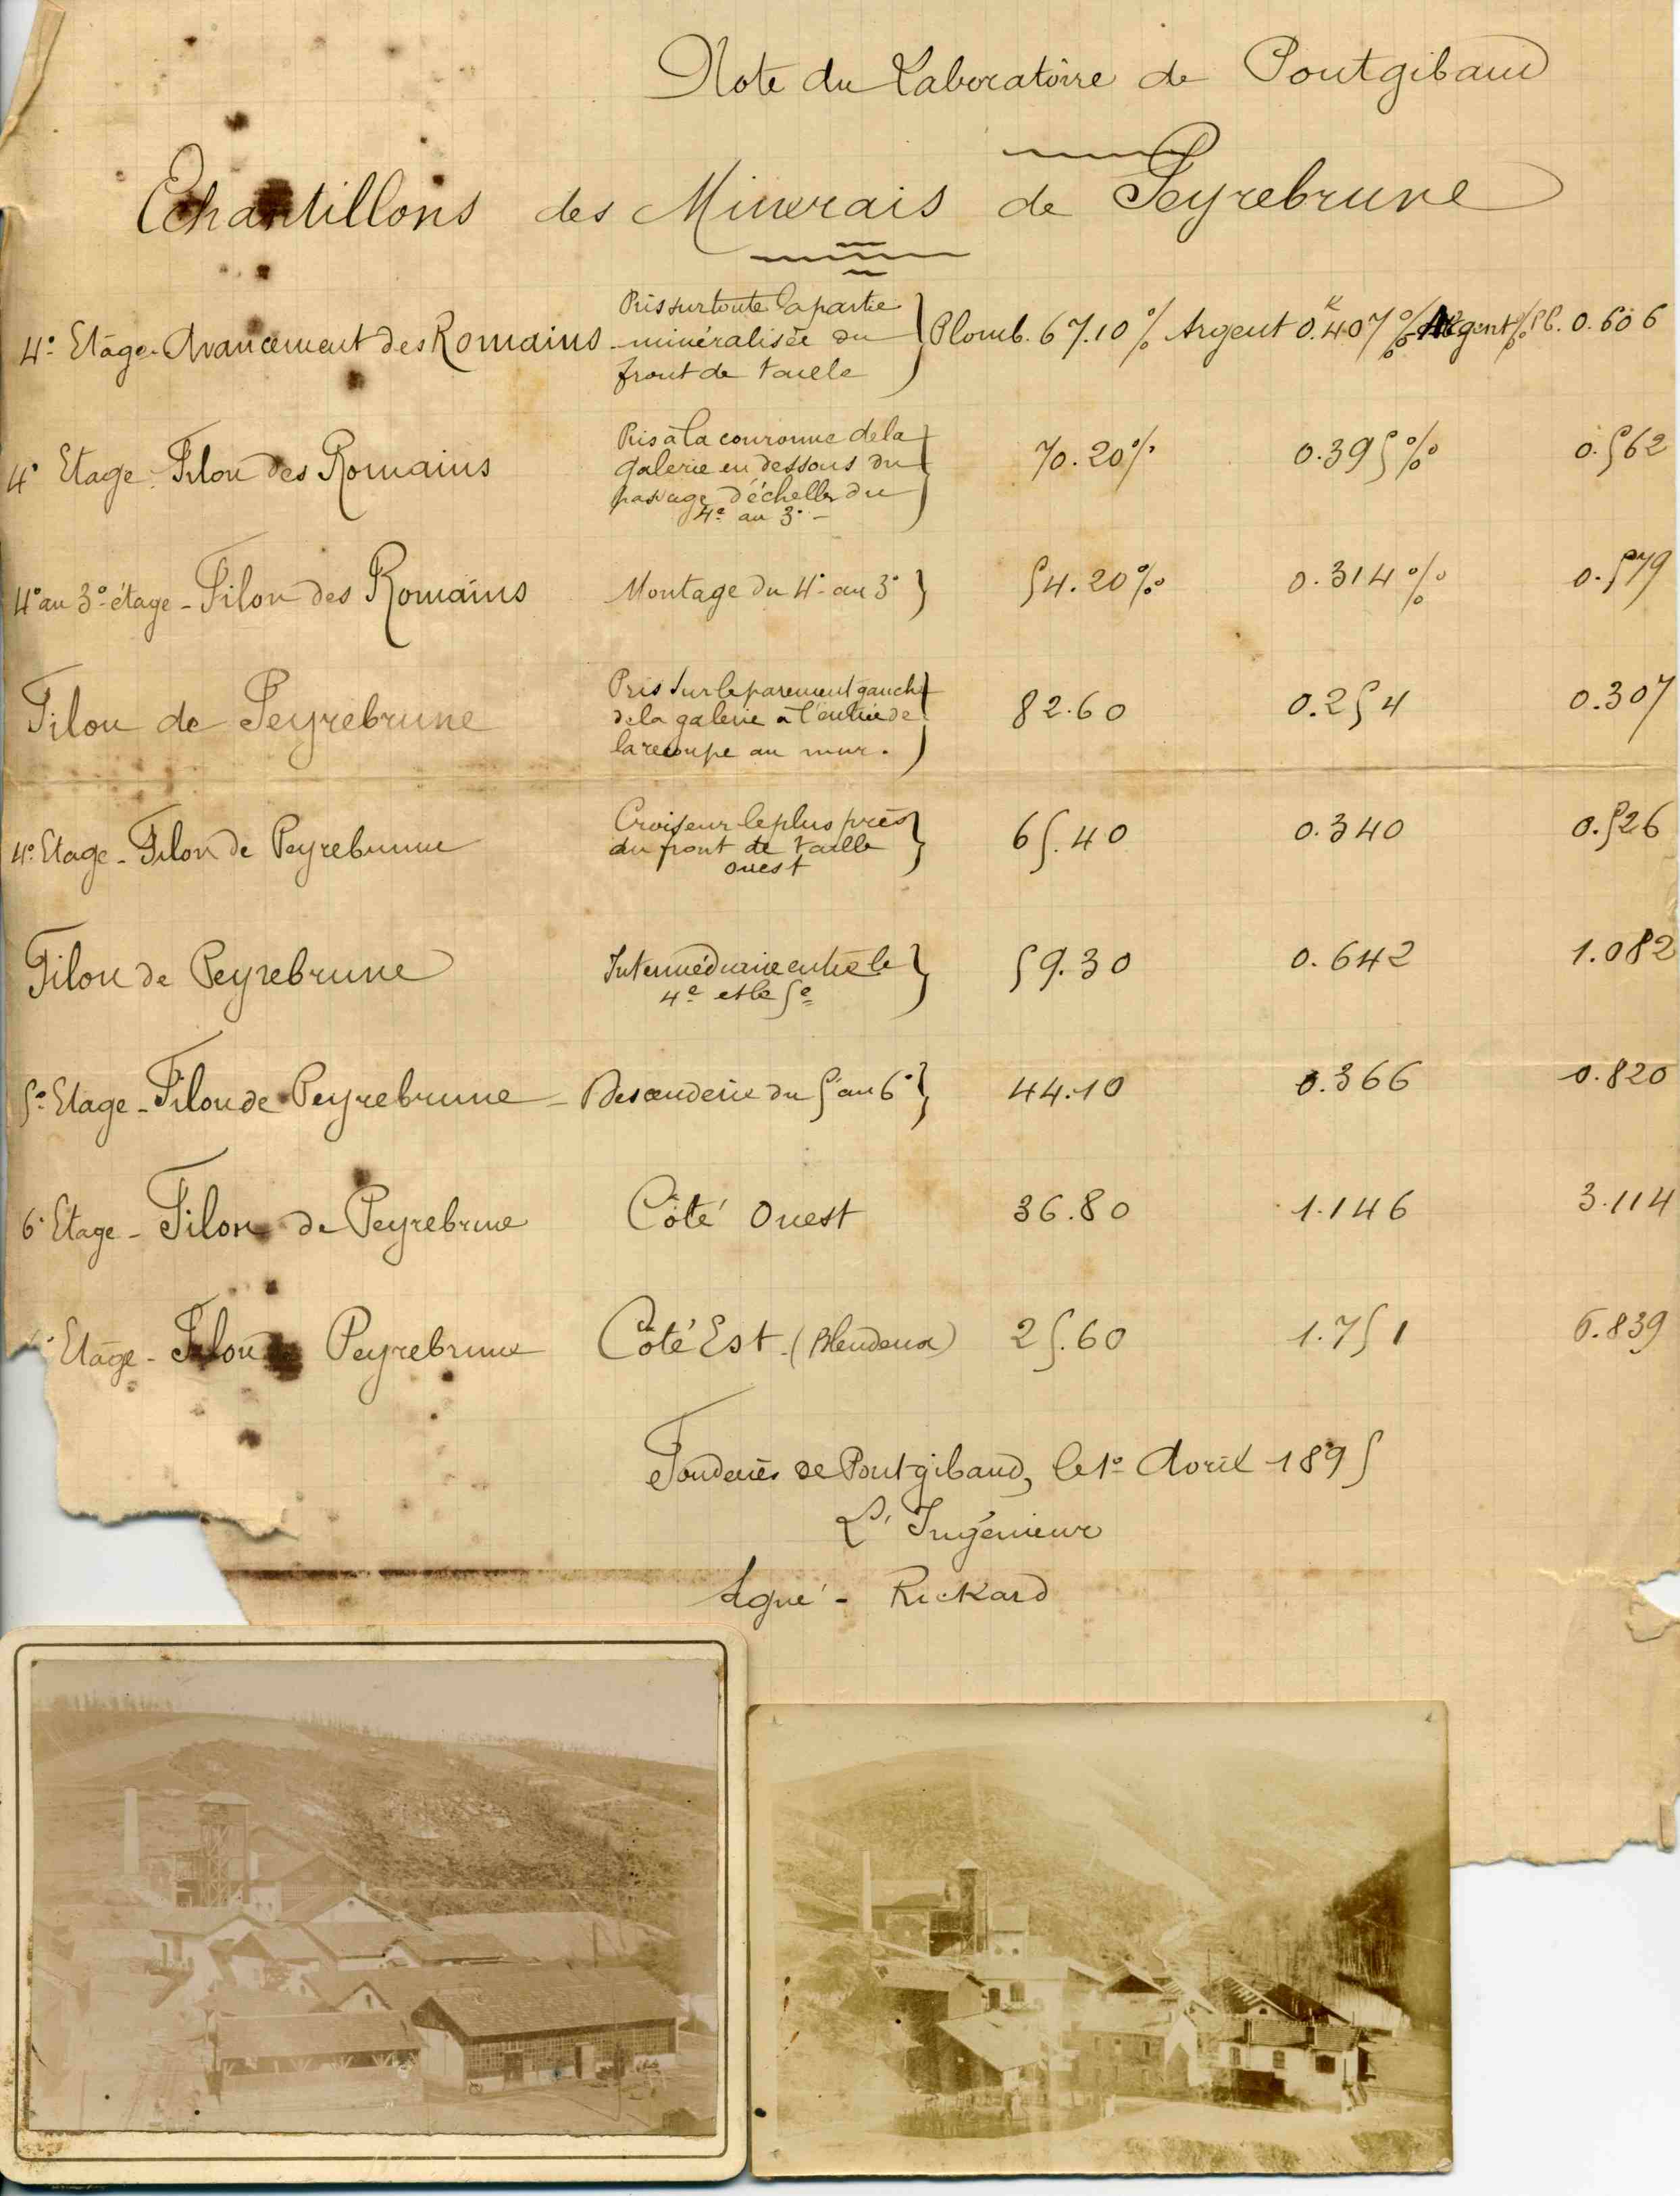 Note du Laboratoire de Pontgibaud
Echantillons des Minerais de Peyrebrune
4e Etage - Avancement des Romains - Pris sur toute la partie
minéralisée du
front de taille } Plomb. 67.10 % Argent 0.K407 %% Argent %% Pb. 0.606
4e Etage - Filon des Romains
Pris à la couronne de la
galerie en dessous du
passage d'échelles du
4e au 3e - } 70.20% 0.395% 0.562
4e au 3e étage - Filon des Romains Montage du 4e au 3e } 54.20% 0.314%% 0.579
Filon de Peyrebrune
Pris sur le parement gauche
de la galerie à l'entrée de
la recoupe au mur. } 82.60 0.254 0.307
4e Etage - Filon de Peyrebrune
Croiseur le plus près
du front de taille
ouest } 65.40 0.340 0.526
Filon de Peyrebrune
Intermédiaire entre le
4e et le 5e } 59.30 0.642 1.082
5e Etage - Filon de Peyrebrune - Descenderie du 5e au 6e } 44.10 0.366 0.820
6e Etage - Filon de Peyrebrune Côté Ouest 36.80 1.146 3.114
Etage - Filon de Peyrebrune Côté Est - (Blendeux) 25.60 1.751 6.839
Fonderies de Pontgibaud, le 1e Avril 1895
L'Ingénieur
Signé - Rickard